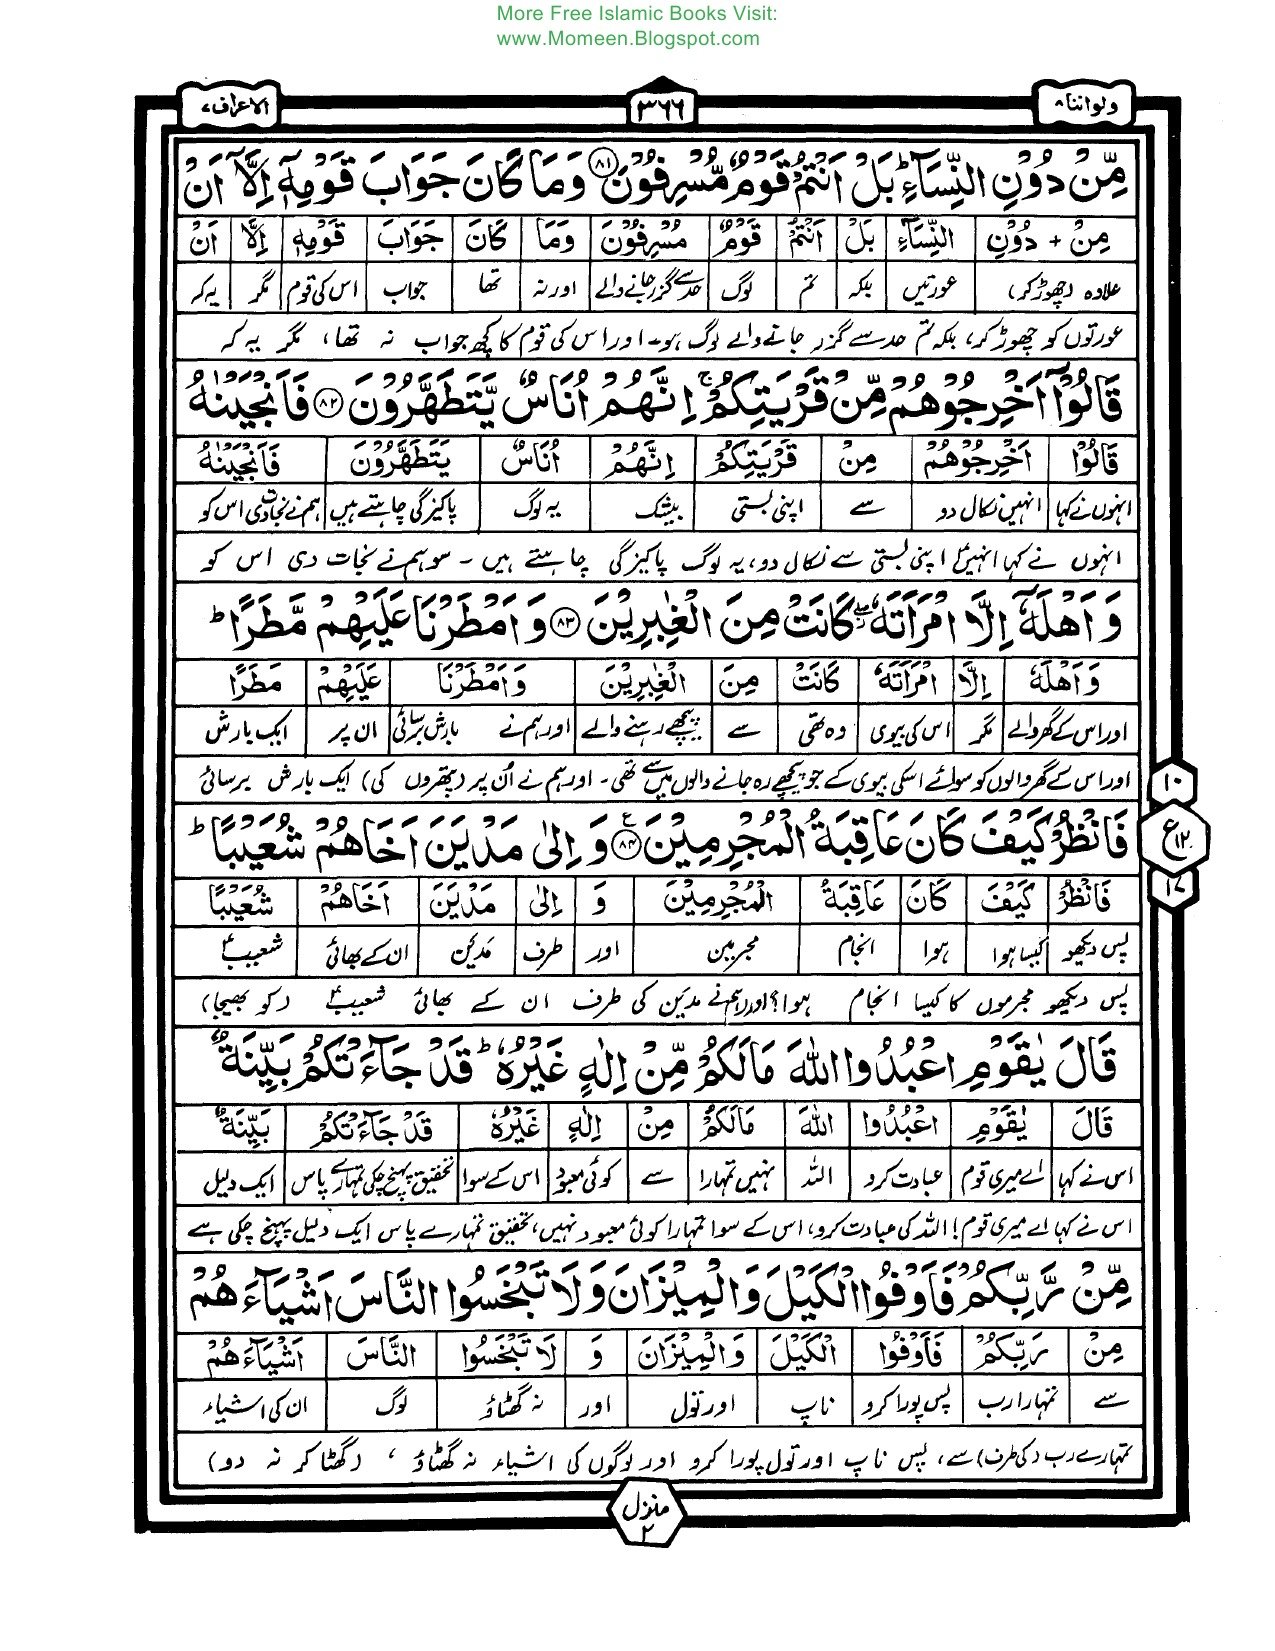 More Free Islamic Books Visit:
www.Momeen.Blogspot.com
ولواننا ۸ ۳۶۶ الاعراف ۷
مِّنْ دُوْنِ النِّسَآءِ ؕ بَلْ اَنْتُمْ قَوْمٌ مُّسْرِفُوْنَ ۸۱ وَمَا كَانَ جَوَابَ قَوْمِهٖۤ اِلَّاۤ اَنْ
مِنْ + دُوْنِ النِّسَآءِ بَلْ اَنْتُمْ قَوْمٌ مُسْرِفُوْنَ وَمَا كَانَ جَوَابَ قَوْمِهٖ اِلَّا اَنْ
علاوہ (چھوڑ کر) عورتیں بلکہ تم لوگ حد سے گزر جانے والے اور نہ تھا جواب اس کی قوم مگر یہ کہ
عورتوں کو چھوڑ کر، بلکہ تم حد سے گزر جانے والے لوگ ہو۔ اور اس کی قوم کا کچھ جواب نہ تھا، مگر یہ کہ
قَالُوْۤا اَخْرِجُوْهُمْ مِّنْ قَرْيَتِكُمْ ۚ اِنَّهُمْ اُنَاسٌ يَّتَطَهَّرُوْنَ ۸۲ فَاَنْجَيْنٰهُ
قَالُوْا اَخْرِجُوْهُمْ مِنْ قَرْيَتِكُمْ اِنَّهُمْ اُنَاسٌ يَتَطَهَّرُوْنَ فَاَنْجَيْنٰهُ
انہوں نے کہا انہیں نکال دو سے اپنی بستی بیشک یہ لوگ پاکیزگی چاہتے ہیں ہم نے نجات دی اس کو
انہوں نے کہا انہیں اپنی بستی سے نکال دو، یہ لوگ پاکیزگی چاہتے ہیں ۔ سو ہم نے نجات دی اس کو
وَاَهْلَهٗۤ اِلَّا امْرَاَتَهٗ ۖؗ كَانَتْ مِنَ الْغٰبِرِيْنَ ۸۳ وَاَمْطَرْنَا عَلَيْهِمْ مَّطَرًا ؕ
وَاَهْلَهٗ اِلَّا امْرَاَتَهٗ كَانَتْ مِنَ الْغٰبِرِيْنَ وَاَمْطَرْنَا عَلَيْهِمْ مَطَرًا
اور اس کے گھر والے مگر اس کی بیوی وہ تھی سے پیچھے رہنے والے اور ہم نے بارش برسائی ان پر ایک بارش
اور اس کے گھر والوں کو سوائے اسکی بیوی کے جو پیچھے رہ جانے والوں میں سے تھی ۔ اور ہم نے اُن پر (پتھروں کی) ایک بارش برسائی
۱۰
ع ۱۲
۱۷
فَانْظُرْ كَيْفَ كَانَ عَاقِبَةُ الْمُجْرِمِيْنَ ۸۴ ع وَاِلٰى مَدْيَنَ اَخَاهُمْ شُعَيْبًا ؕ
فَانْظُرْ كَيْفَ كَانَ عَاقِبَةُ الْمُجْرِمِيْنَ وَ اِلٰى مَدْيَنَ اَخَاهُمْ شُعَيْبًا
پس دیکھو کیسا ہوا ہوا انجام مجرمین اور طرف مدین ان کے بھائی شعیبؑ
پس دیکھو مجرموں کا کیسا انجام ہوا؟ اور ہم نے مدین کی طرف ان کے بھائی شعیبؑ (کو بھیجا)
قَالَ يٰقَوْمِ اعْبُدُوا اللّٰهَ مَا لَكُمْ مِّنْ اِلٰهٍ غَيْرُهٗ ؕ قَدْ جَآءَتْكُمْ بَيِّنَةٌ
قَالَ يٰقَوْمِ اعْبُدُوا اللّٰهَ مَالَكُمْ مِنْ اِلٰهٍ غَيْرُهٗ قَدْ جَآءَتْكُمْ بَيِّنَةٌ
اس نے کہا اے میری قوم عبادت کرو اللہ نہیں تمہارا سے کوئی معبود اس کے سوا تحقیق پہنچ چکی تمہارے پاس ایک دلیل
اس نے کہا اے میری قوم! اللہ کی عبادت کرو، اس کے سوا تمہارا کوئی معبود نہیں، تحقیق تمہارے پاس ایک دلیل پہنچ چکی ہے
مِّنْ رَّبِّكُمْ فَاَوْفُوا الْكَيْلَ وَالْمِيْزَانَ وَلَا تَبْخَسُوا النَّاسَ اَشْيَآءَهُمْ
مِنْ رَبِّكُمْ فَاَوْفُوا الْكَيْلَ وَالْمِيْزَانَ وَ لَا تَبْخَسُوا النَّاسَ اَشْيَآءَهُمْ
سے تمہارا رب پس پورا کرو ناپ اور تول اور نہ گھٹاؤ لوگ ان کی اشیاء
تمہارے رب (کی طرف) سے، پس ناپ اور تول پورا کرو اور لوگوں کی اشیاء نہ گھٹاؤ ، (گھٹا کر نہ دو)
منزل ۲